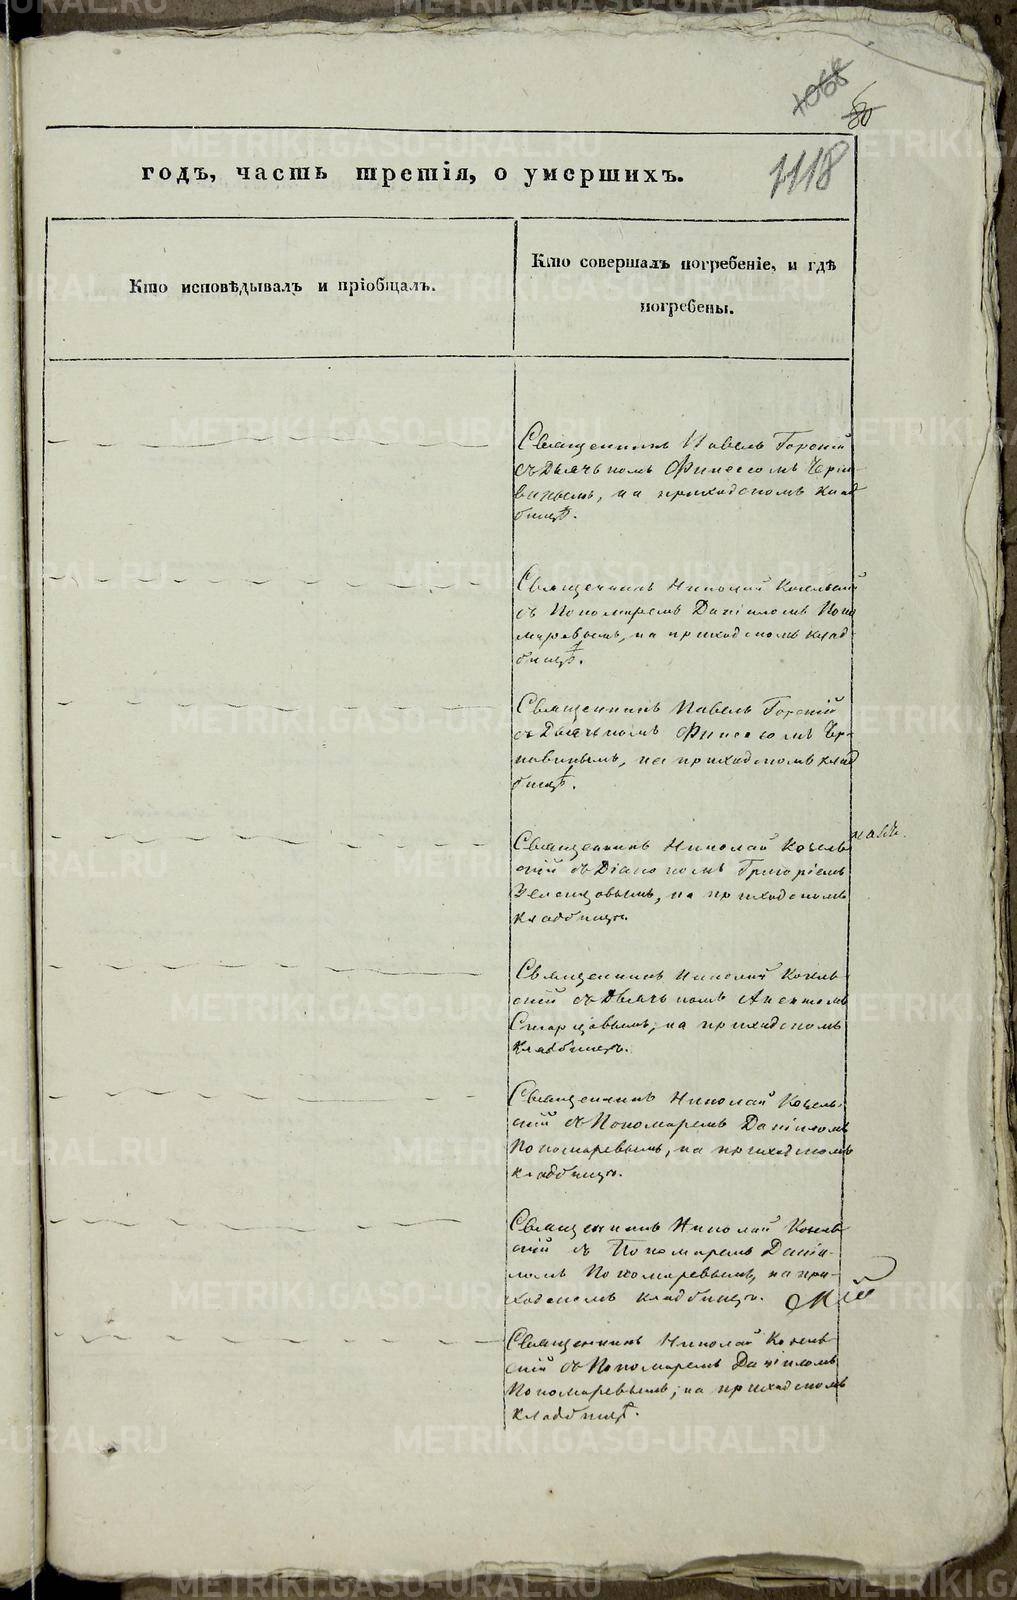 1068
80
1118
годъ, часть третія, о умершихъ.
Кто исповѣдывалъ и пріобщалъ.
Кто совершалъ погребеніе, и гдѣ
погребены.
Священникъ Павелъ Горскій
съ Дьячькомъ Финеесомъ
на приходскомъ клад
бищѣ.
Священникъ Николай Кокельскій
съ Пономаремъ Даніиломъ Поно
маревымъ, на приходскомъ клад-
бищѣ.
Священникъ Павелъ Горскій
съ Дьячькомъ Финеесомъ
на приходскомъ клад
бищѣ.
Священникъ Николай Кокель
скій съ Діакономъ Григоріемъ
на приходскомъ
кладбищѣ.
Священникъ Николай Кокель-
скій съ Дьячькомъ
Старцовымъ, на приходскомъ
кладбищѣ.
Священникъ Николай Кокель-
скій съ Пономаремъ Даніиломъ
Пономаревымъ, на приходскомъ
кладбищѣ.
Священникъ Николай Кокель
скій съ Пономаремъ Даніи-
ломъ Пономаревымъ, на при-
ходскомъ кладбищѣ.
Священникъ Николай Кокель-
скій съ Пономаремъ Даніиломъ
Пономаревымъ, на приходскомъ
кладбищѣ.
METRIKI.GASO-URAL.RU